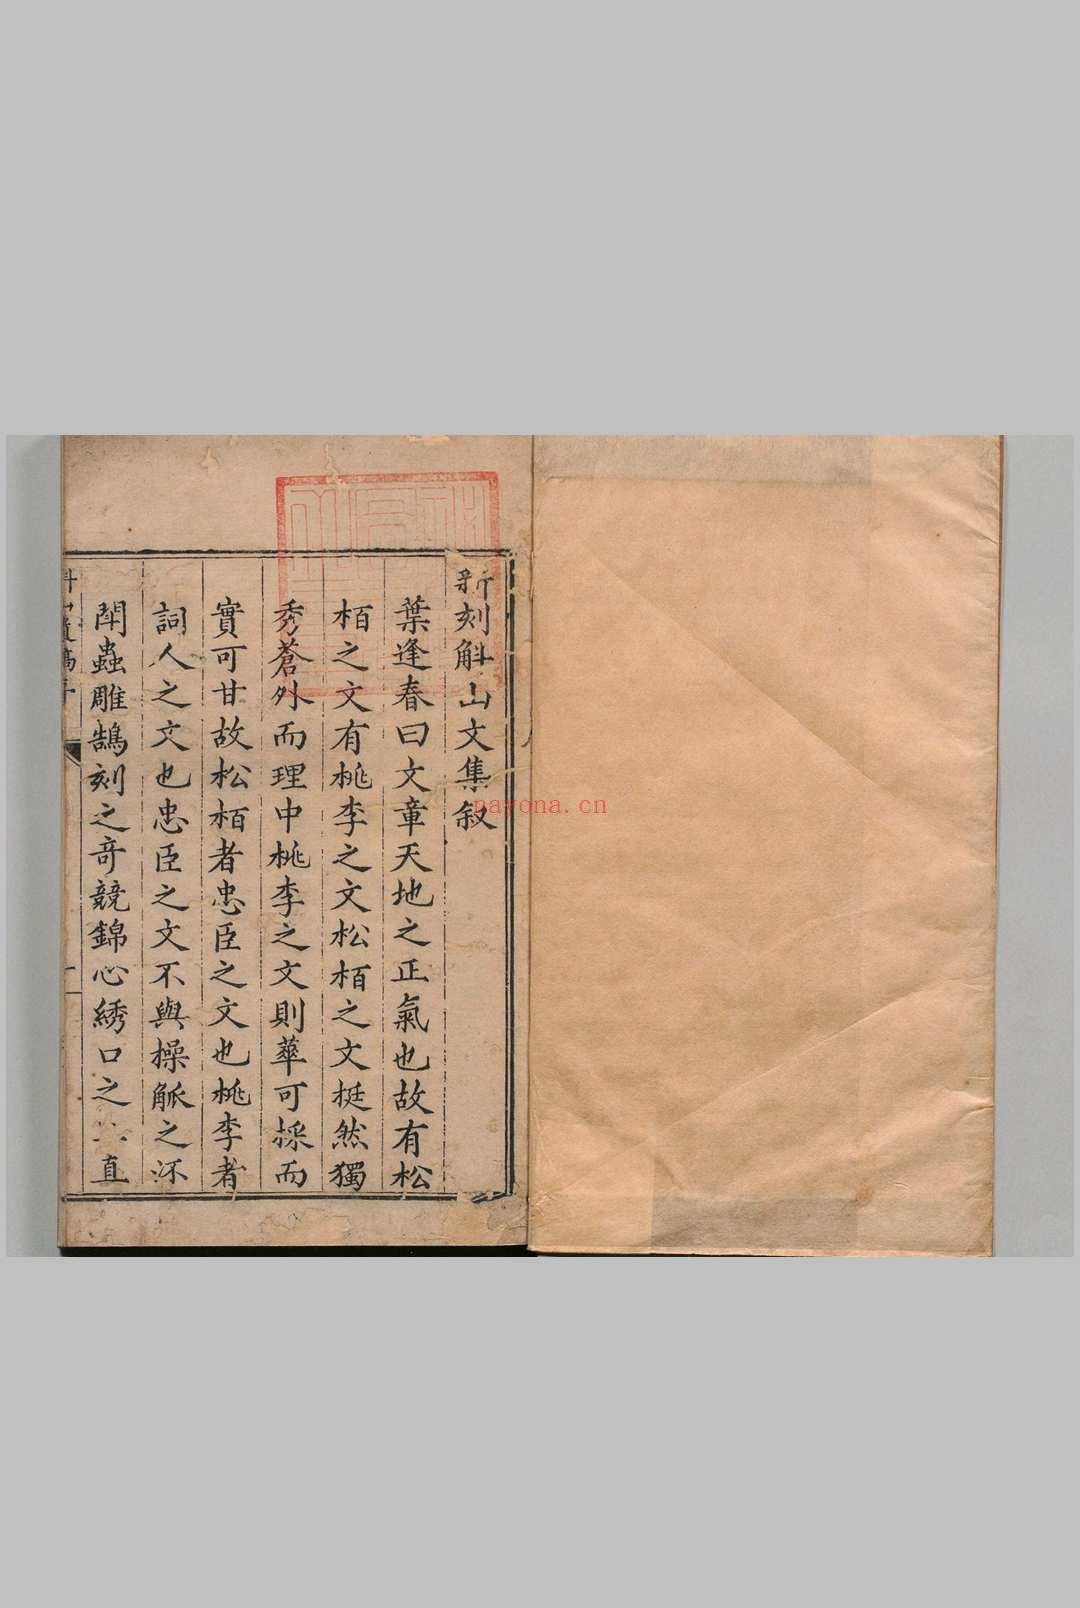 新刻斛山文集叙
葉逢春曰文章天地之正氣也故有松
栢之文有桃李之文松栢之文挺然獨
秀蒼外而理中桃李之文則華可採而
實可甘故松栢者忠臣之文也桃李者
詞人之文也忠臣之文不與操觚之流
闘蟲雕鵠刻之竒競錦心綉口之 直
nayona.cn